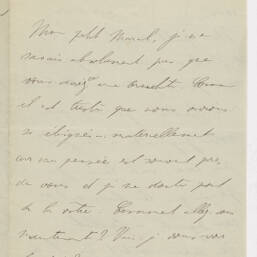 Mon petit Marcel, je ne
savais absolument pas que
vous aviez une bronchite. Comme
il est triste que nous soyons
si éloignés - matériellement
car ma pensée est souvent près
de vous et je ne doute pas
de la vôtre. Comment allez vous
maintenant ? Puis-je vous voir